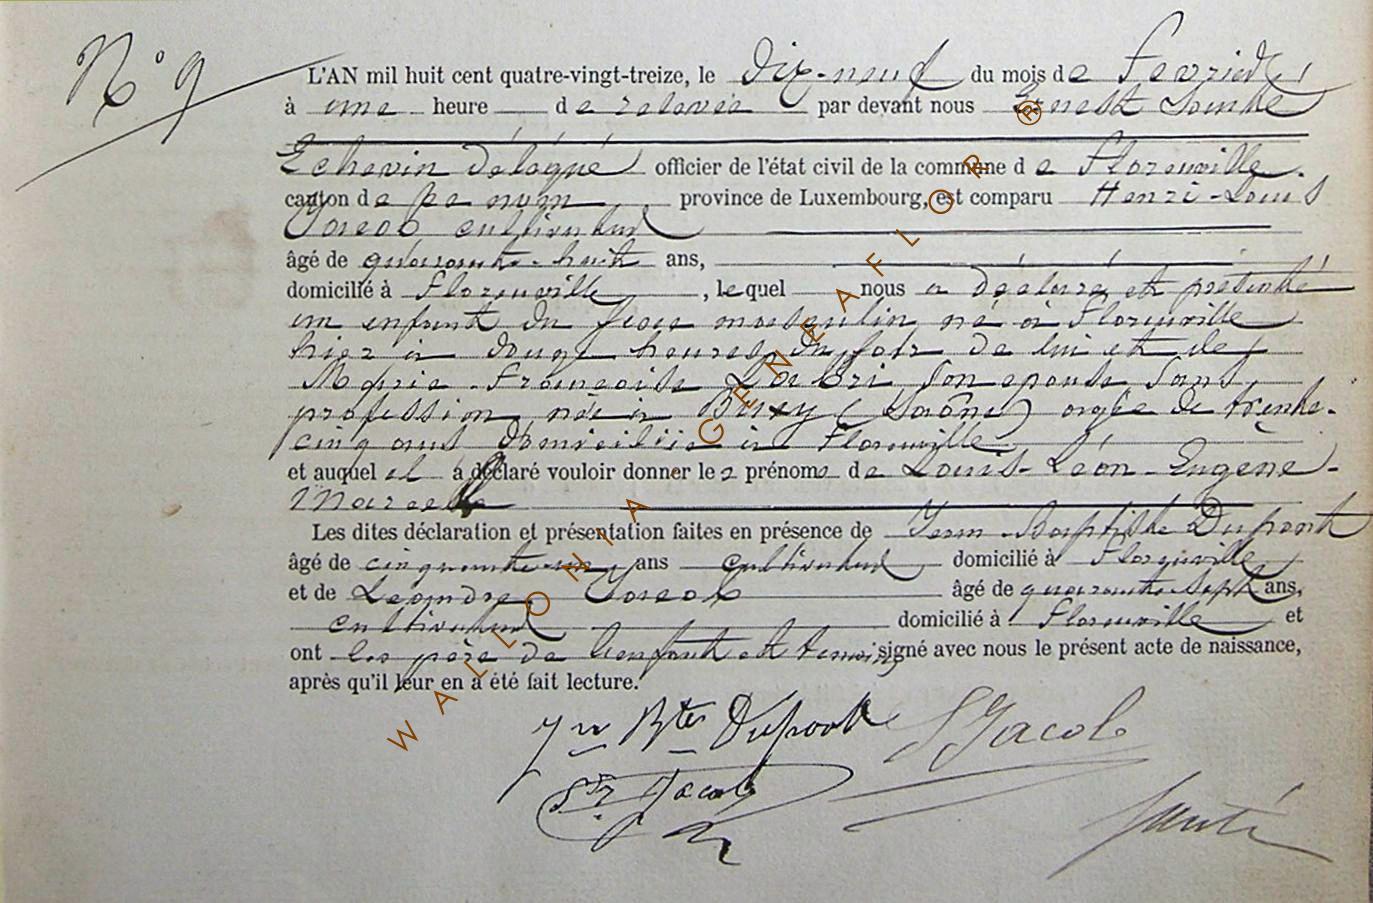 N° 9
L'AN mil huit cent quatre-vingt-treize, le Dix-neuf du mois de Fevrier
à une heure de relevée par devant nous Ernest
Echevin délégué officier de l'état civil de la commune de Florenville
canton de ce nom province de Luxembourg, est comparu Henri-Louis
Jacob cultivateur
âgé de quarante-huit ans,
domicilié à Florenville, lequel nous a déclaré et présenté
un enfant du sexe masculin né à Florenville
hier à douze heures du soir de lui et de
Marie-Françoise son epouse sans
profession née à (Saône) agée de trente-
cinq ans domiciliée à Florenville
et auquel il a déclaré vouloir donner les prénoms de Louis-Léon-Eugène-
Marcel
Les dites déclaration et présentation faites en présence de Jean-Baptiste Dupont
âgé de cinquante-un ans cultivateur domicilié à Florenville
et de Leandre Jacob âgé de quarante-sept ans,
cultivateur domicilié à Florenville et
ont les père de l'enfant et temoins signé avec nous le présent acte de naissance,
après qu'il leur en a été fait lecture.
Jn Bte Dupont L Jacob
Jacob
WALLONIA GENEAFLOR ®